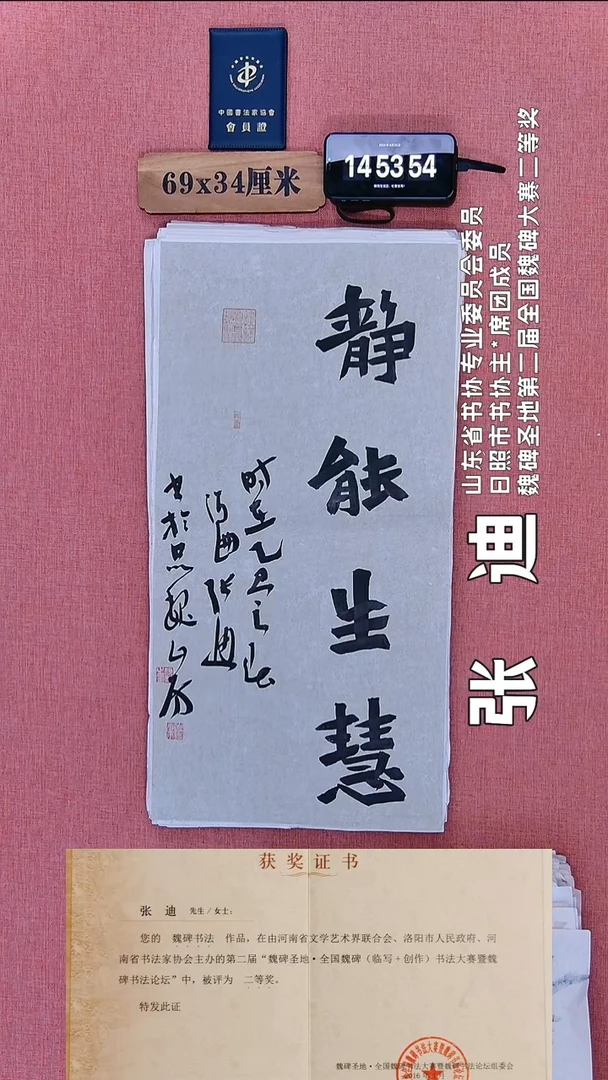 中國書法家協會
會員證
69x34厘米
14 53 54
山东省书协专业委员会委员
日照市书协主*席团成员
魏碑圣地第二届全国魏碑大赛二等奖
张迪
静能生慧
时在乙巳之秋
海曲张迪
书于日照魏山房
获奖证书
张 迪 先生/女士：
您的 魏碑书法 作品，在由河南省文学艺术界联合会、洛阳市人民政府、河
南省书法家协会主办的第二届“魏碑圣地·全国魏碑（临写+创作）书法大赛暨魏
碑书法论坛”中，被评为 二等奖。
特发此证
魏碑圣地·全国魏碑书法大赛暨魏碑书法论坛组委会